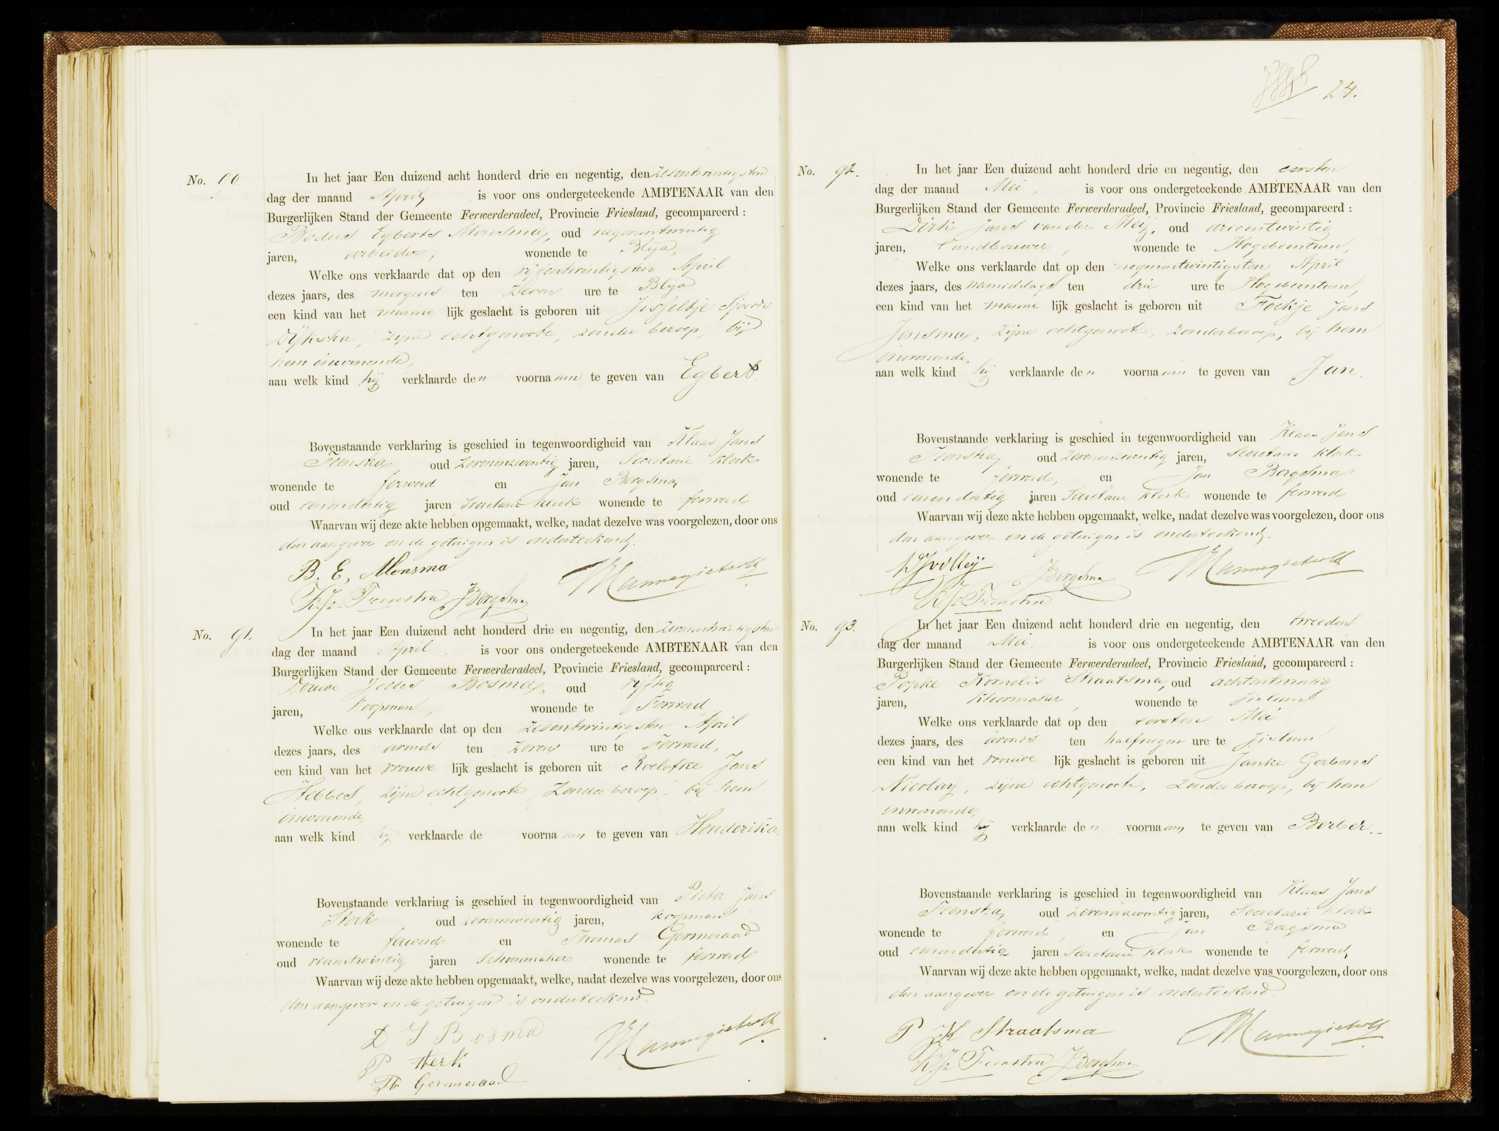 24.
No.
In het jaar Een duizend acht honderd drie en negentig, den
dag der maand April is voor ons ondergeteekende AMBTENAAR van den
Burgerlijken Stand der Gemeente Ferwerderadeel, Provincie Friesland, gecompareerd :
Egberts Monsma, oud negenentwintig
jaren, arbeider, wonende te Blija,
Welke ons verklaarde dat op den April
dezes jaars, des morgens ten zeven ure te Blija
een kind van het manne lijk geslacht is geboren uit
Dijkstra, zijne echtgenoote, zonder beroep, bij
hem inwonende,
aan welk kind hij verklaarde den voornaam te geven van Egbert
Bovenstaande verklaring is geschied in tegenwoordigheid van Klaas Jans
oud jaren, Secretarie klerk
wonende te Ferwerd en Jan Bergsma,
oud eenendertig jaren Secretarie klerk wonende te Ferwerd
Waarvan wij deze akte hebben opgemaakt, welke, nadat dezelve was voorgelezen, door ons
den aangever en de getuigen is onderteekend.
B. E, Monsma
No. 91.
In het jaar Een duizend acht honderd drie en negentig, den zevenentwintigsten
dag der maand April is voor ons ondergeteekende AMBTENAAR van den
Burgerlijken Stand der Gemeente Ferwerderadeel, Provincie Friesland, gecompareerd :
Douwe Bosma, oud vijftig
jaren, Koopman, wonende te Ferwerd
Welke ons verklaarde dat op den zesentwintigsten April
dezes jaars, des avonds ten zeven ure te Ferwerd,
een kind van het vrouwe lijk geslacht is geboren uit Roelofke Jans
zijne echtgenoote, Zonder beroep, bij hem
inwonende
aan welk kind hij verklaarde de voornaam te geven van Henderika
Bovenstaande verklaring is geschied in tegenwoordigheid van Pieter Jans
Sterk oud jaren, koopman
wonende te Ferwerd en Thomas Germeraad
oud jaren Schoenmaker wonende te Ferwerd
Waarvan wij deze akte hebben opgemaakt, welke, nadat dezelve was voorgelezen, door ons
den aangever en de getuigen is onderteekend.
D J Bosma
P Sterk
Th Germeraad
No. 92.
In het jaar Een duizend acht honderd drie en negentig, den eersten
dag der maand Mei, is voor ons ondergeteekende AMBTENAAR van den
Burgerlijken Stand der Gemeente Ferwerderadeel, Provincie Friesland, gecompareerd :
Dirk Jans van der Meij, oud
jaren, Landbouwer, wonende te Hogebeintum,
Welke ons verklaarde dat op den negenentwintigsten April
dezes jaars, des namiddags ten drie ure te Hogebeintum
een kind van het manne lijk geslacht is geboren uit Fokje Jans
Jensma, zijne echtgenoote, zonder beroep, bij hem
inwonende.
aan welk kind hij verklaarde den voornaam te geven van Jan.
Bovenstaande verklaring is geschied in tegenwoordigheid van Klaas Jans
oud jaren, Secretarie klerk
wonende te Ferwerd, en Jan Bergsma
oud eenendertig jaren Secretarie klerk wonende te Ferwerd
Waarvan wij deze akte hebben opgemaakt, welke, nadat dezelve was voorgelezen, door ons
den aangever en de getuigen is onderteekend.
No. 93.
In het jaar Een duizend acht honderd drie en negentig, den tweeden
dag der maand Mei is voor ons ondergeteekende AMBTENAAR van den
Burgerlijken Stand der Gemeente Ferwerderadeel, Provincie Friesland, gecompareerd :
Popke Kornelis Straatsma, oud achtentwintig
jaren, Kleermaker, wonende te Jislum
Welke ons verklaarde dat op den eersten Mei
dezes jaars, des avonds ten halfnegen ure te Jislum
een kind van het vrouwe lijk geslacht is geboren uit Janke Gerbens
Nicolay, zijne echtgenoote, zonder beroep, bij hem
inwonende,
aan welk kind hij verklaarde den voornaam te geven van Berber.
Bovenstaande verklaring is geschied in tegenwoordigheid van Klaas Jans
oud jaren, Secretarie klerk
wonende te Ferwerd, en Jan Bergsma
oud eenendertig jaren Secretarie klerk wonende te Ferwerd,
Waarvan wij deze akte hebben opgemaakt, welke, nadat dezelve was voorgelezen, door ons
den aangever en de getuigen is onderteekend.
P K Straatsma
J Bergsma